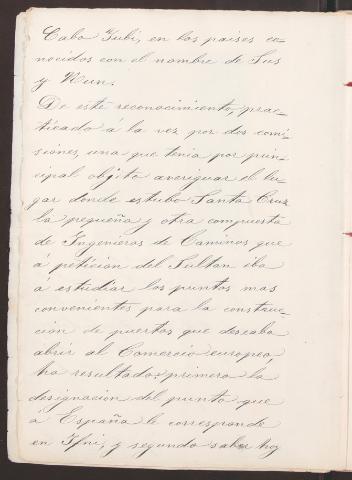 Cabo Jubi, en los paises co-
nocidos con el nombre de Sus
y Nun.
De este reconocimiento, prac-
ticado á la vez por dos comi-
siones, una que tenia por prin-
cipal objeto averiguar el lu-
gar donde estubo Santa Cruz
la pequeña y otra compuesta
de Ingenieros de Caminos que
á peticion del Sultan iba
á estudiar los puntos mas
convenientes para la construc-
cion de puertos que deseaba
abrir al Comercio europeo,
ha resultado: primero la
designacion del punto que
á España le corresponde
en Ifni, y segundo saber hoy